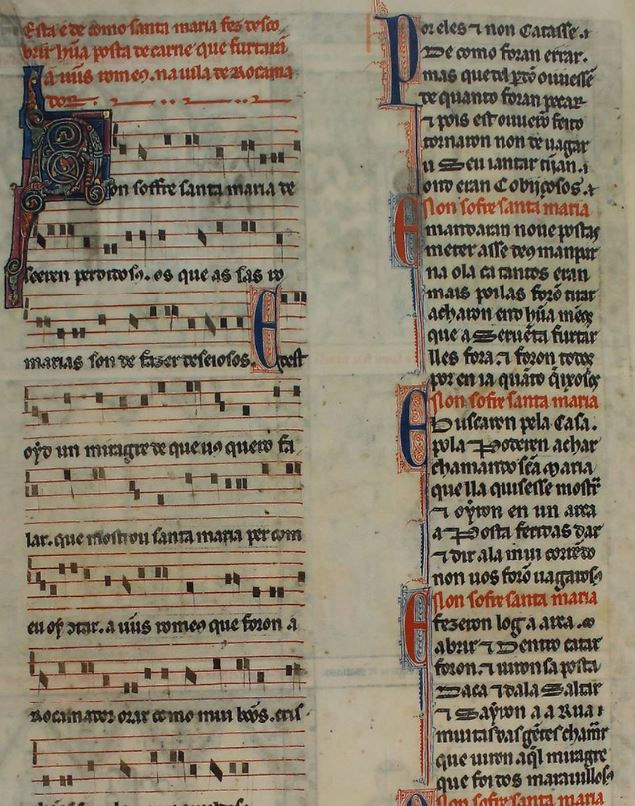 Esta é de como santa maria fez desco
brir hũa posta de carne que furtarã
a uũs romeos. na uila de Rocama
dor.
Non soffre santa maria de
seeren perdidosos. os que as sas ro
marias son de fazer deseiosos. E dest
oyd un miragre de que uos quero fa
lar. que mostrou santa maria per com
eu oy contar. a uũs romeos que foron a
Rocamador orar como mui bõos. cris
Por eles e non Catasse.
De como foran errar.
mas que del perdõ ouuessẽ
de quanto foran pecar
e pois est ouuerõ feito
tornaron non de uagar
u Seu iantar tĩian.
ond eran Cobiiçosos.
Non sofre santa maria
E mandaran noue postas
meter asse deus manpar
na ola ca tantos eran
mais poilas forõ tirar
acharon end hũa menos
que a Seruẽta furtar
lles fora. e foron todos
por en ia quãto q̃ixosos
Non sofre santa maria
E buscaron pela Casa.
pola Poderen achar
chamando sc̃a Maria
que lla quisesse mostrar
e oyron en un arca
a Posta feridas dar
e dir ala mui correndo
non uos forõ uagarosos
Non sofre santa maria
E fezeron log a arca.
abrir e Dentro catar
foron. e uiron sa posta
Daca e dala Saltar
e Sayron a a Rua
muitas das gẽtes chamar
que uiron aq̃l miragre
que foi dos marauillosos
Non sofre santa maria